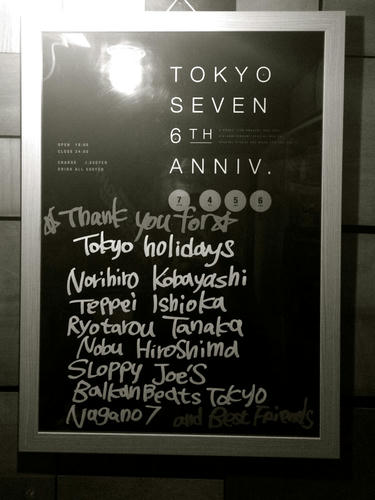 TOKYO
SEVEN
6TH
ANNIV.
OPEN 18:00
CLOSE 24:00
CHARGE
DRINK ALL
7 4 5 6
☆Thank you for☆
Tokyo holidays
Norihiro Kobayashi
Teppei Ishioka
Ryotarou Tanaka
Nobu HiroShima
SLOPPY JOE'S
BalkanBeats Tokyo
Nagano7 and Best Friends